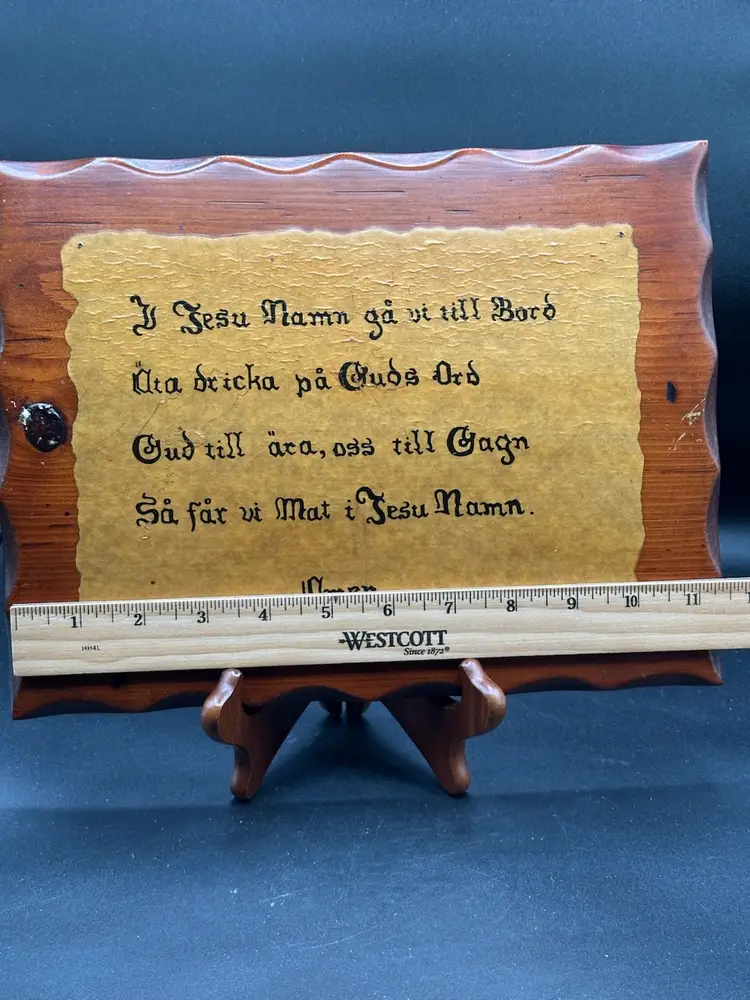 I Jesu Namn gå vi till Bord
Äta dricka på Guds Ord
Gud till ära, oss till Gagn
Så får vi Mat i Jesu Namn.
1 2 3 4 5 6 7 8 9 10 11
HH4L
WESTCOTT
Since 1872®